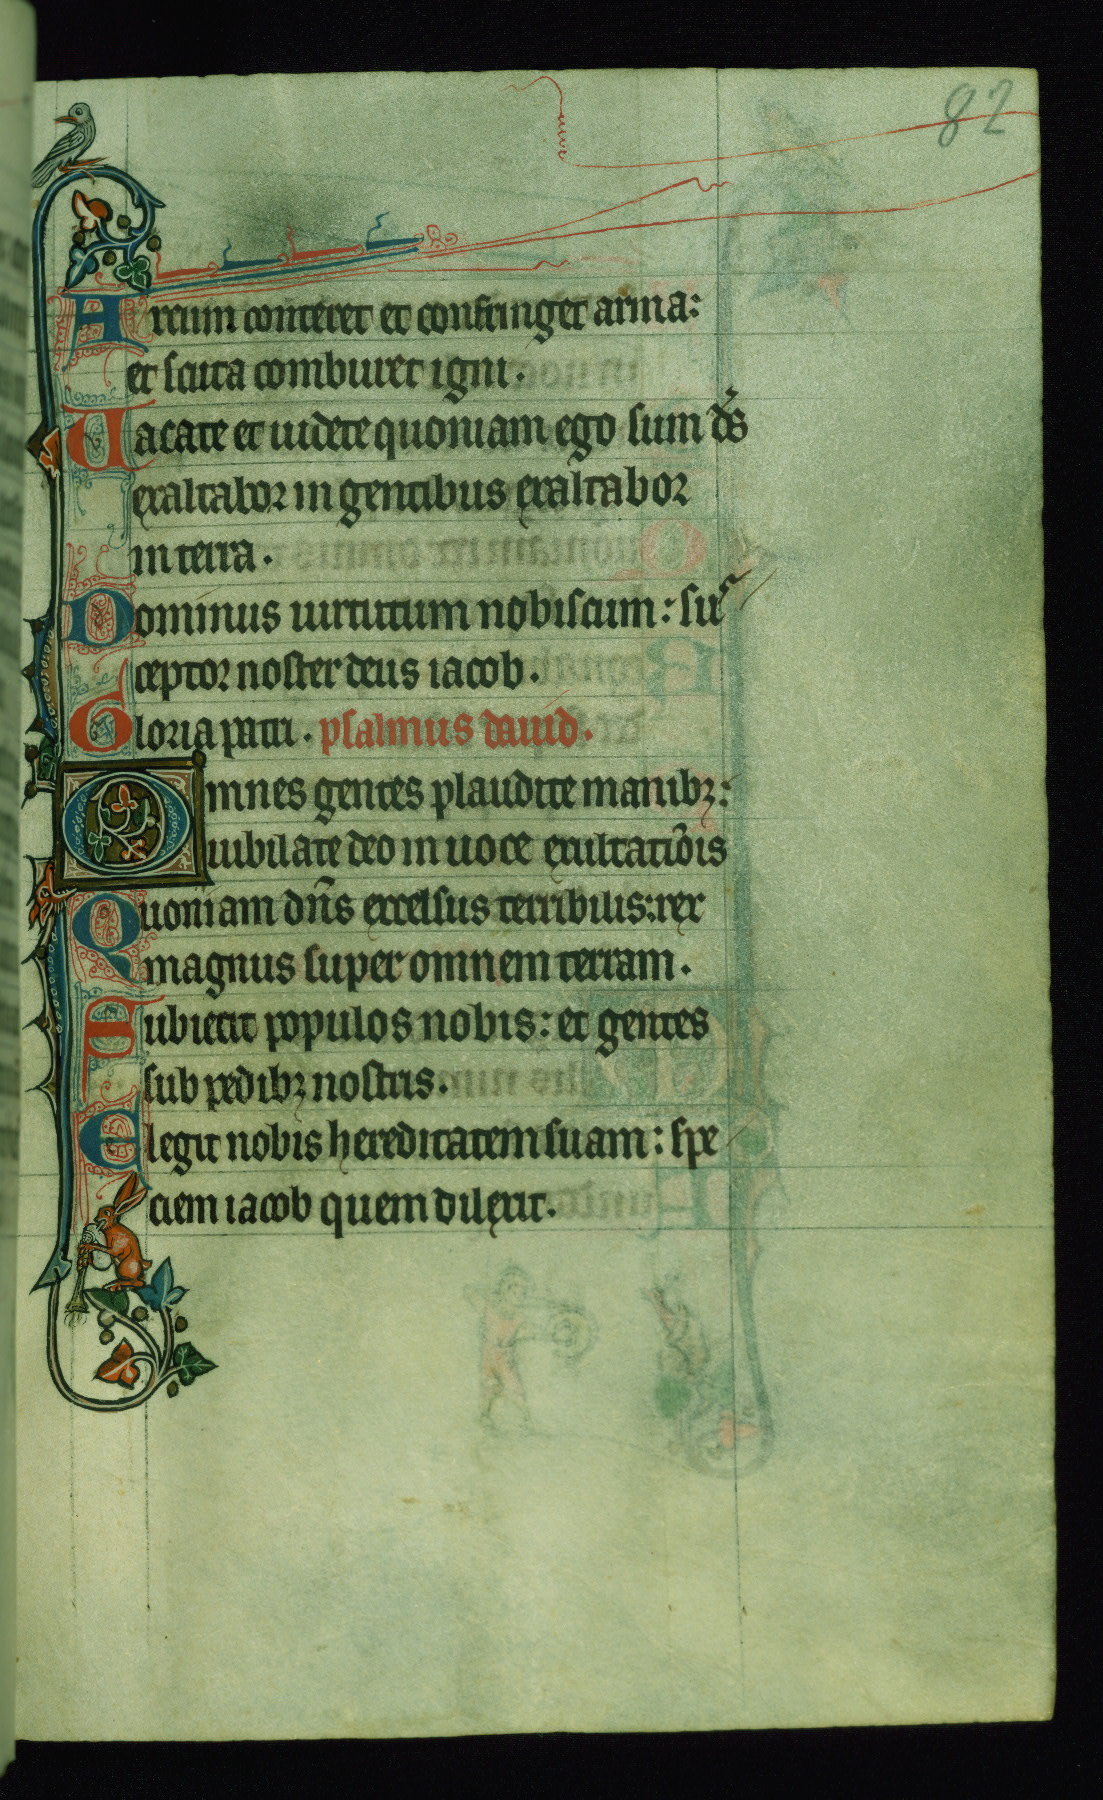 82
Arcum conteret et confringet arma:
et scuta comburet igni.
Uacate et uidete quoniam ego sum ds̄
exaltabor in gentibus exaltabor
in terra.
Dominus uirtutum nobiscum: sus
ceptor noster deus iacob.
Gloria patri. psalmus dauid.
Omnes gentes plaudite manibꝫ:
iubilate deo in uoce exultatiōis
Quoniam dn̄s excelsus terribilis: rex
magnus super omnem terram.
Subiecit populos nobis: et gentes
sub pedibꝫ nostris.
Elegit nobis hereditatem suam: spe
ciem iacob quem dilexit.